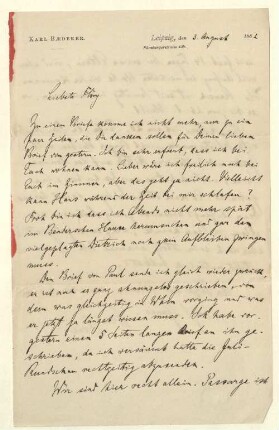 KARL BÆDEKER.
Leipzig, den 3. August 1882
Nürnbergerstrasse
Liebste Flory
Zu einem Briefe komme ich nicht mehr, nur zu ein
paar Zeilen, die Dir danken sollen für Deinen lieben
Brief von gestern. Ich bin sehr erfreut, dass ich bei
Euch wohnen kann. Lieber wäre ich freilich nach bei
Euch im Zimmer, aber das geht ja nicht. Vielleicht
kann Hans während der Zeit bei mir schlafen?
Froh bin ich dass ich Abends nicht mehr spät
im Hause herumsuchen und gar den
vielgeplagten Dietrich noch zum Aufbleiben zwingen
muss.
Den Brief von Paul sende ich gleich wieder zurück,
er ist noch so ganz ahnungslos geschrieben, von
dem was gleichzeitig in vorging und was
er jetzt ja längst wissen muss. Ich habe vor-
gestern einen 5 Seiten langen Brief an ihn ge-
schrieben, da ich versäumt hatte die
Rundschau rechtzeitig abzusenden.
Wir sind hier recht allein. Passarge ist